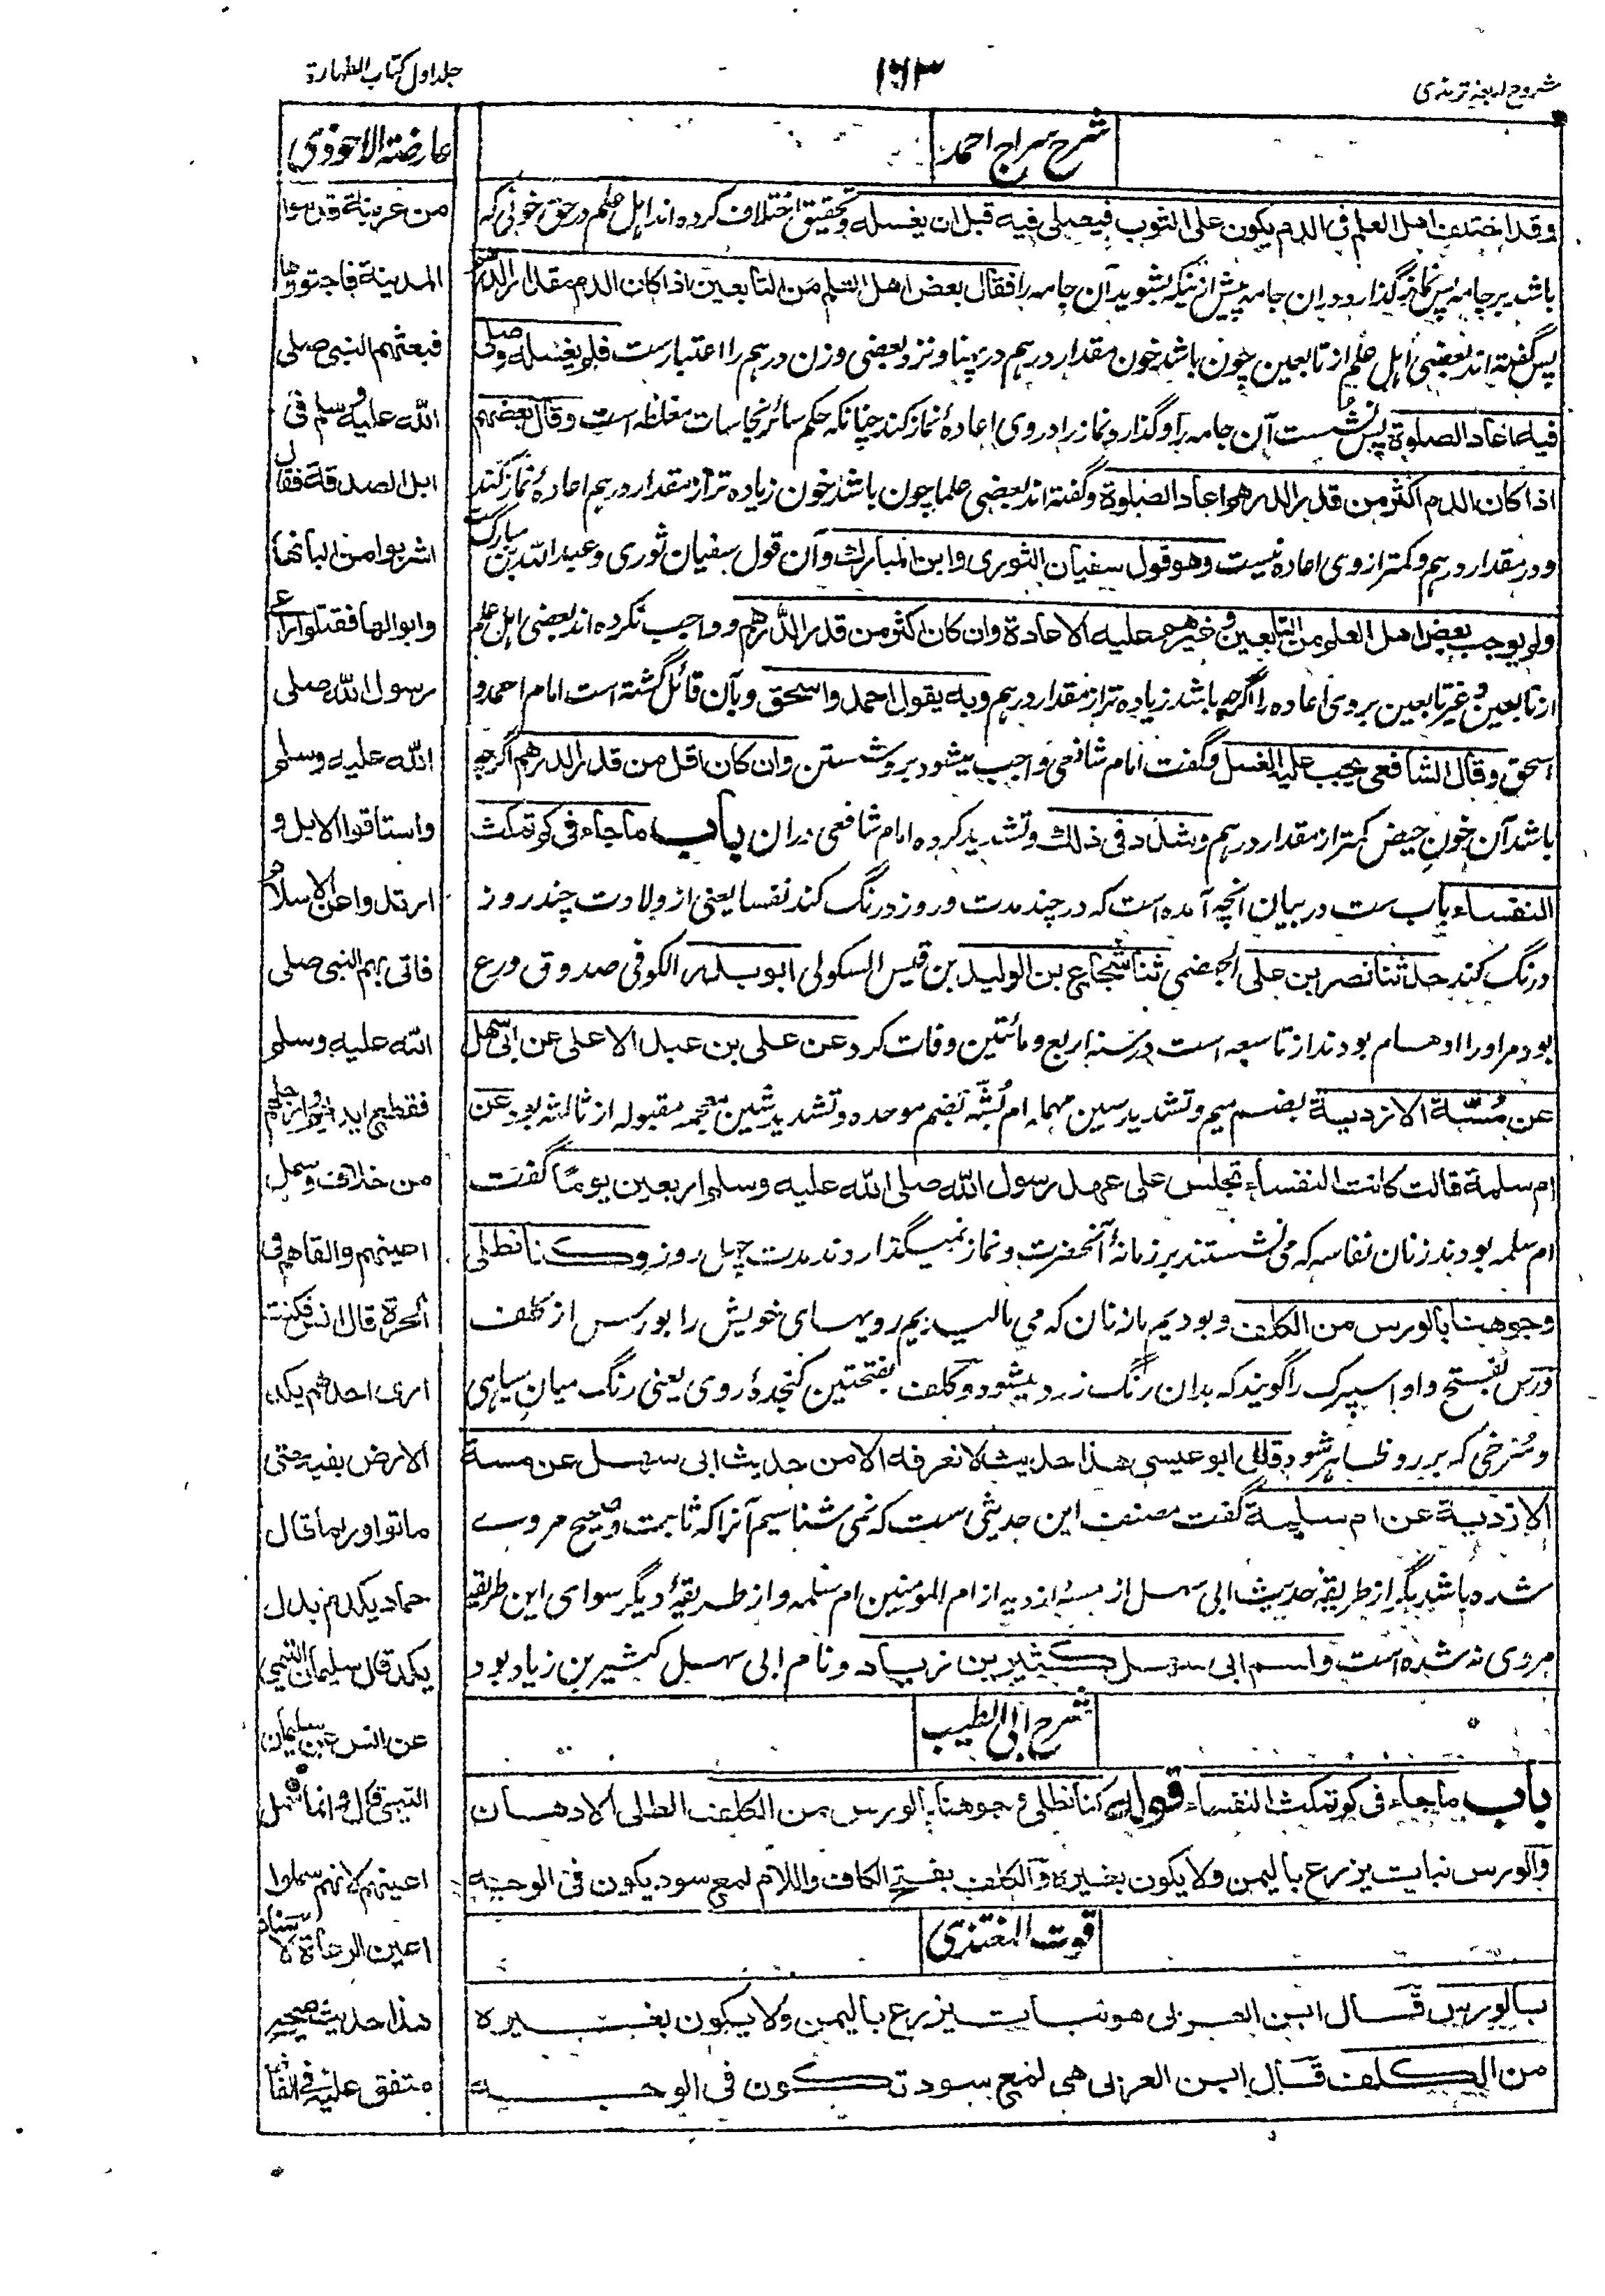 شروح اربعه ترمذی
۱۶۳
جلد اول کتاب الطهارة
شرح سراج احمد
وقد اختلف اهل العلم فی الدم یکون علی الثوب فیصلی فیه قبل ان یغسله وتحقیق اختلاف کرده اند اهل علم در حق خونی که
باشد بر جامه پس نماز گذارد دران جامه پیش از نیکه بشوید آن جامه را فقال بعض اهل العلم من التابعین اذا کان الدم مقدار الدرهم
پس گفته اند بعضی اهل علم از تابعین چون باشد خون مقدار درهم در پهنا ونزد بعضی وزن درهم را اعتبارست فلم یغسله وصلی
فیه اعاد الصلوة پس نشست آن جامه را وگذارد نماز را در وی اعادهٔ نماز کند چنانکه حکم سائر نجاسات مغلظه است وقال بعضهم
اذا کان الدم اکثر من قدر الدرهم اعاد الصلوة وگفته اند بعضی علما چون باشد خون زیاده تر از مقدار درهم اعادهٔ نماز کند
ودر مقدار درهم وکمتر از وی اعاده نیست وهو قول سفیان الثوری وابن المبارک وآن قول سفیان ثوری وعبد الله بن مبارک
ولم یوجب بعض اهل العلم من التابعین وغیرهم علیه الاعادة وان کان اکثر من قدر الدرهم وواجب نکرده اند بعضی اهل علم
از تابعین وغیر تابعین بر وی اعاده را اگرچه باشد زیاده تر از مقدار درهم وبه یقول احمد واسحق وبآن قائل گشته است امام احمد و
اسحق وقال الشافعی یجب علیه الغسل وگفت امام شافعی واجب میشود بروشستن وان کان اقل من قدر الدرهم اگرچه
باشد آن خون حیض کمتر از مقدار درهم وشدد فی ذلک وتشدید کرده امام شافعی دران باب ما جاء فی کم تمکث
النفساء باب ست در بیان آنچه آمده است که در چند مدت وروز درنگ کند نفسا یعنی از ولادت چند روز
درنگ کند حدثنا نصر بن علی الجهضمی ثنا شجاع بن الولید بن قیس السکونی ابو بدر الکوفی صدوق ورع
بود مر او را اوهام بودند از تاسعه است در سنه اربع ومائتین وفات کرد عن علی بن عبد الاعلی عن ابی سهل
عن مُسّة الازدیة بضم میم وتشدید سین مهمله ام بُسّه بضم موحده وتشدید شین معجمه مقبوله از ثالثه بود عن
ام سلمة قالت کانت النفساء تجلس علی عهد رسول الله صلی الله علیه وسلم اربعین یوما گفت
ام سلمه بودند زنان نفاسه که می نشستند بر زمانهٔ آنحضرت ونماز نمیگذاردند مدت چهل روز وکنا نطلی
وجوهنا بالورس من الکلف وبودیم ما زنان که می مالیدیم رویهای خویش را بورس از کلف
ورس بفتح واو اسپرک را گویند که بدان رنگ زرد میشود وکلف بفتحتین کنجدهٔ روی یعنی رنگ میان سیاهی
وسُرخی که بر رو ظاهر شود قال ابو عیسی هذا حدیث لا نعرفه الا من حدیث ابی سهل عن مسة
الازدیة عن ام سلمة گفت مصنف این حدیثی ست که نمی شناسیم آنرا که ثابت وصحیح مروے
شده باشد مگر از طریقهٔ حدیث ابی سهل از مسه ازدیه از ام المومنین ام سلمه واز طریقهٔ دیگر سوای این طریقه
مروی نه شده است واسم ابی سهل کثیر بن زیاد ونام ابی سهل کثیر بن زیاد بود
شرح ابی الطیب
باب ما جاء فی کم تمکث النفساء قوله کنا نطلی وجوهنا بالورس من الکلف الطلی الادهان
والورس نبات یزرع بالیمن ولا یکون بغیره والکلف بفتح الکاف واللام لمع سود یکون فی الوجه
قوت المغتذی
بالورس قال ابن العربی هو نبات یزرع بالیمن ولا یکون بغیره
من الکلف قال ابن العربی هی لمع سود تکون فی الوجه
عارضة الاحوذی
من عرینة قدموا
المدینة فاجتووها
فبعثهم النبی صلی
الله علیه وسلم فی
ابل الصدقة فقال
اشربوا من البانها
وابوالها فقتلوا راعی
رسول الله صلی
الله علیه وسلم
واستاقوا الابل و
ارتدوا عن الاسلام
فاتی بهم النبی صلی
الله علیه وسلم
فقطع ایدیهم وارجلهم
من خلاف وسمل
اعینهم والقاهم فی
الحرة قال انس فکنت
اری احدهم یکد
الارض بفیه حتی
ماتوا وربما قال
حماد یکدم بدل
یکد قال سلیمان التیمی
عن انس عن سلیمان
التیمی قال وانما سمل
اعینهم لانهم سملوا
اعین الرعاة
هذا حدیث صحیح
متفق علیه